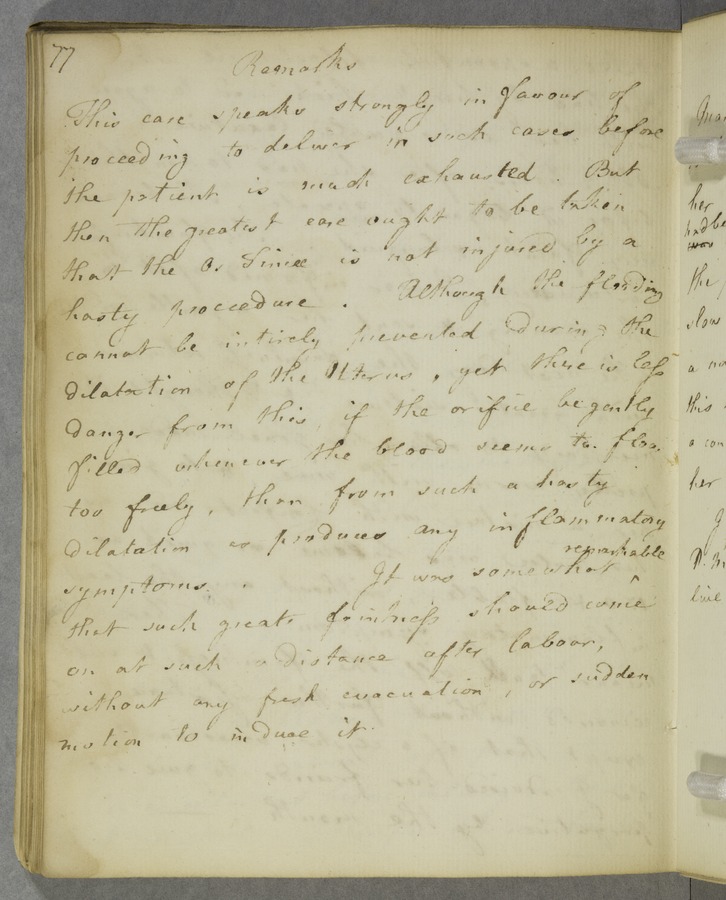 77
Remarks
This case speaks strongly in favour of
proceeding to deliver in such cases before
the patient is much exhausted. But
then the greatest care ought to be taken
that the Os Tincæ is not injured by a
hasty procedure. Although the flooding
cannot be intirely prevented during the
dilatation of the Uterus, yet there is less
danger from this, if the orifice be gently
filled whenever the blood seems to flow
too freely, than from such a hasty
dilatation as produces any inflammatory
remarkable
symptoms. It was somewhat ^
that such great faintness should come
on at such a distance after labour,
without any fresh evacuation, or sudden
motion to induce it.
her
had be
the
slow
a
this
a con
her